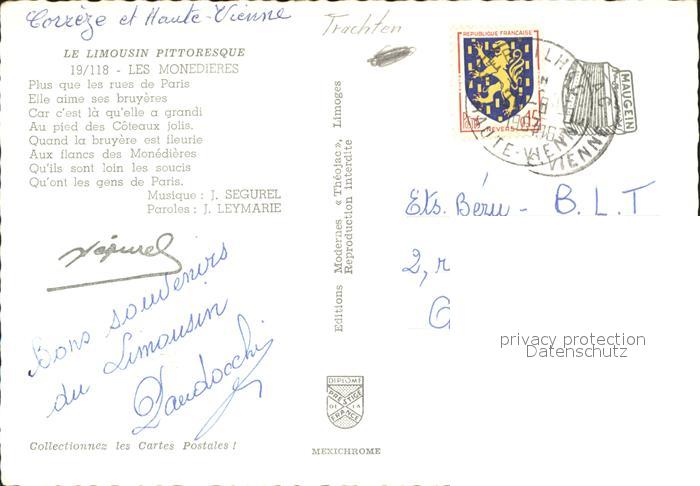 Corrèze et Haute-Vienne
Trachten
LE LIMOUSIN PITTORESQUE
19/118 - LES MONEDIERES
Plus que les rues de Paris
Elle aime ses bruyères
Car c'est là qu'elle a grandi
Au pied des Côteaux jolis.
Quand la bruyère est fleurie
Aux flancs des Monédières
Qu'ils sont loin les soucis
Qu'ont les gens de Paris.
Musique : J. SEGUREL
Paroles : J. LEYMARIE
Ségurel
Bons souvenirs
du Limousin
Collectionnez les Cartes Postales !
Editions Modernes « Théojac », Limoges
Reproduction Interdite
DIPLOME
PRESTIGE
DE LA
FRANCE
MEXICHROME
REPUBLIQUE FRANÇAISE
NEVERS
HAUTE-VIENNE
MAUGEIN
Ets. Béru - B.L.T
2, r
privacy protection
Datenschutz